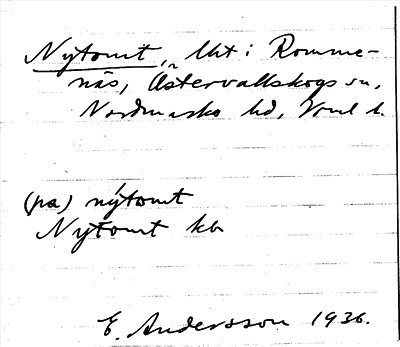 Nytomt, lht i Romme-
näs, Östervallskogs sn,
Nordmarks hd, Vrml l.
(pa) nýtomt
Nytomt kb
E. Andersson 1936.